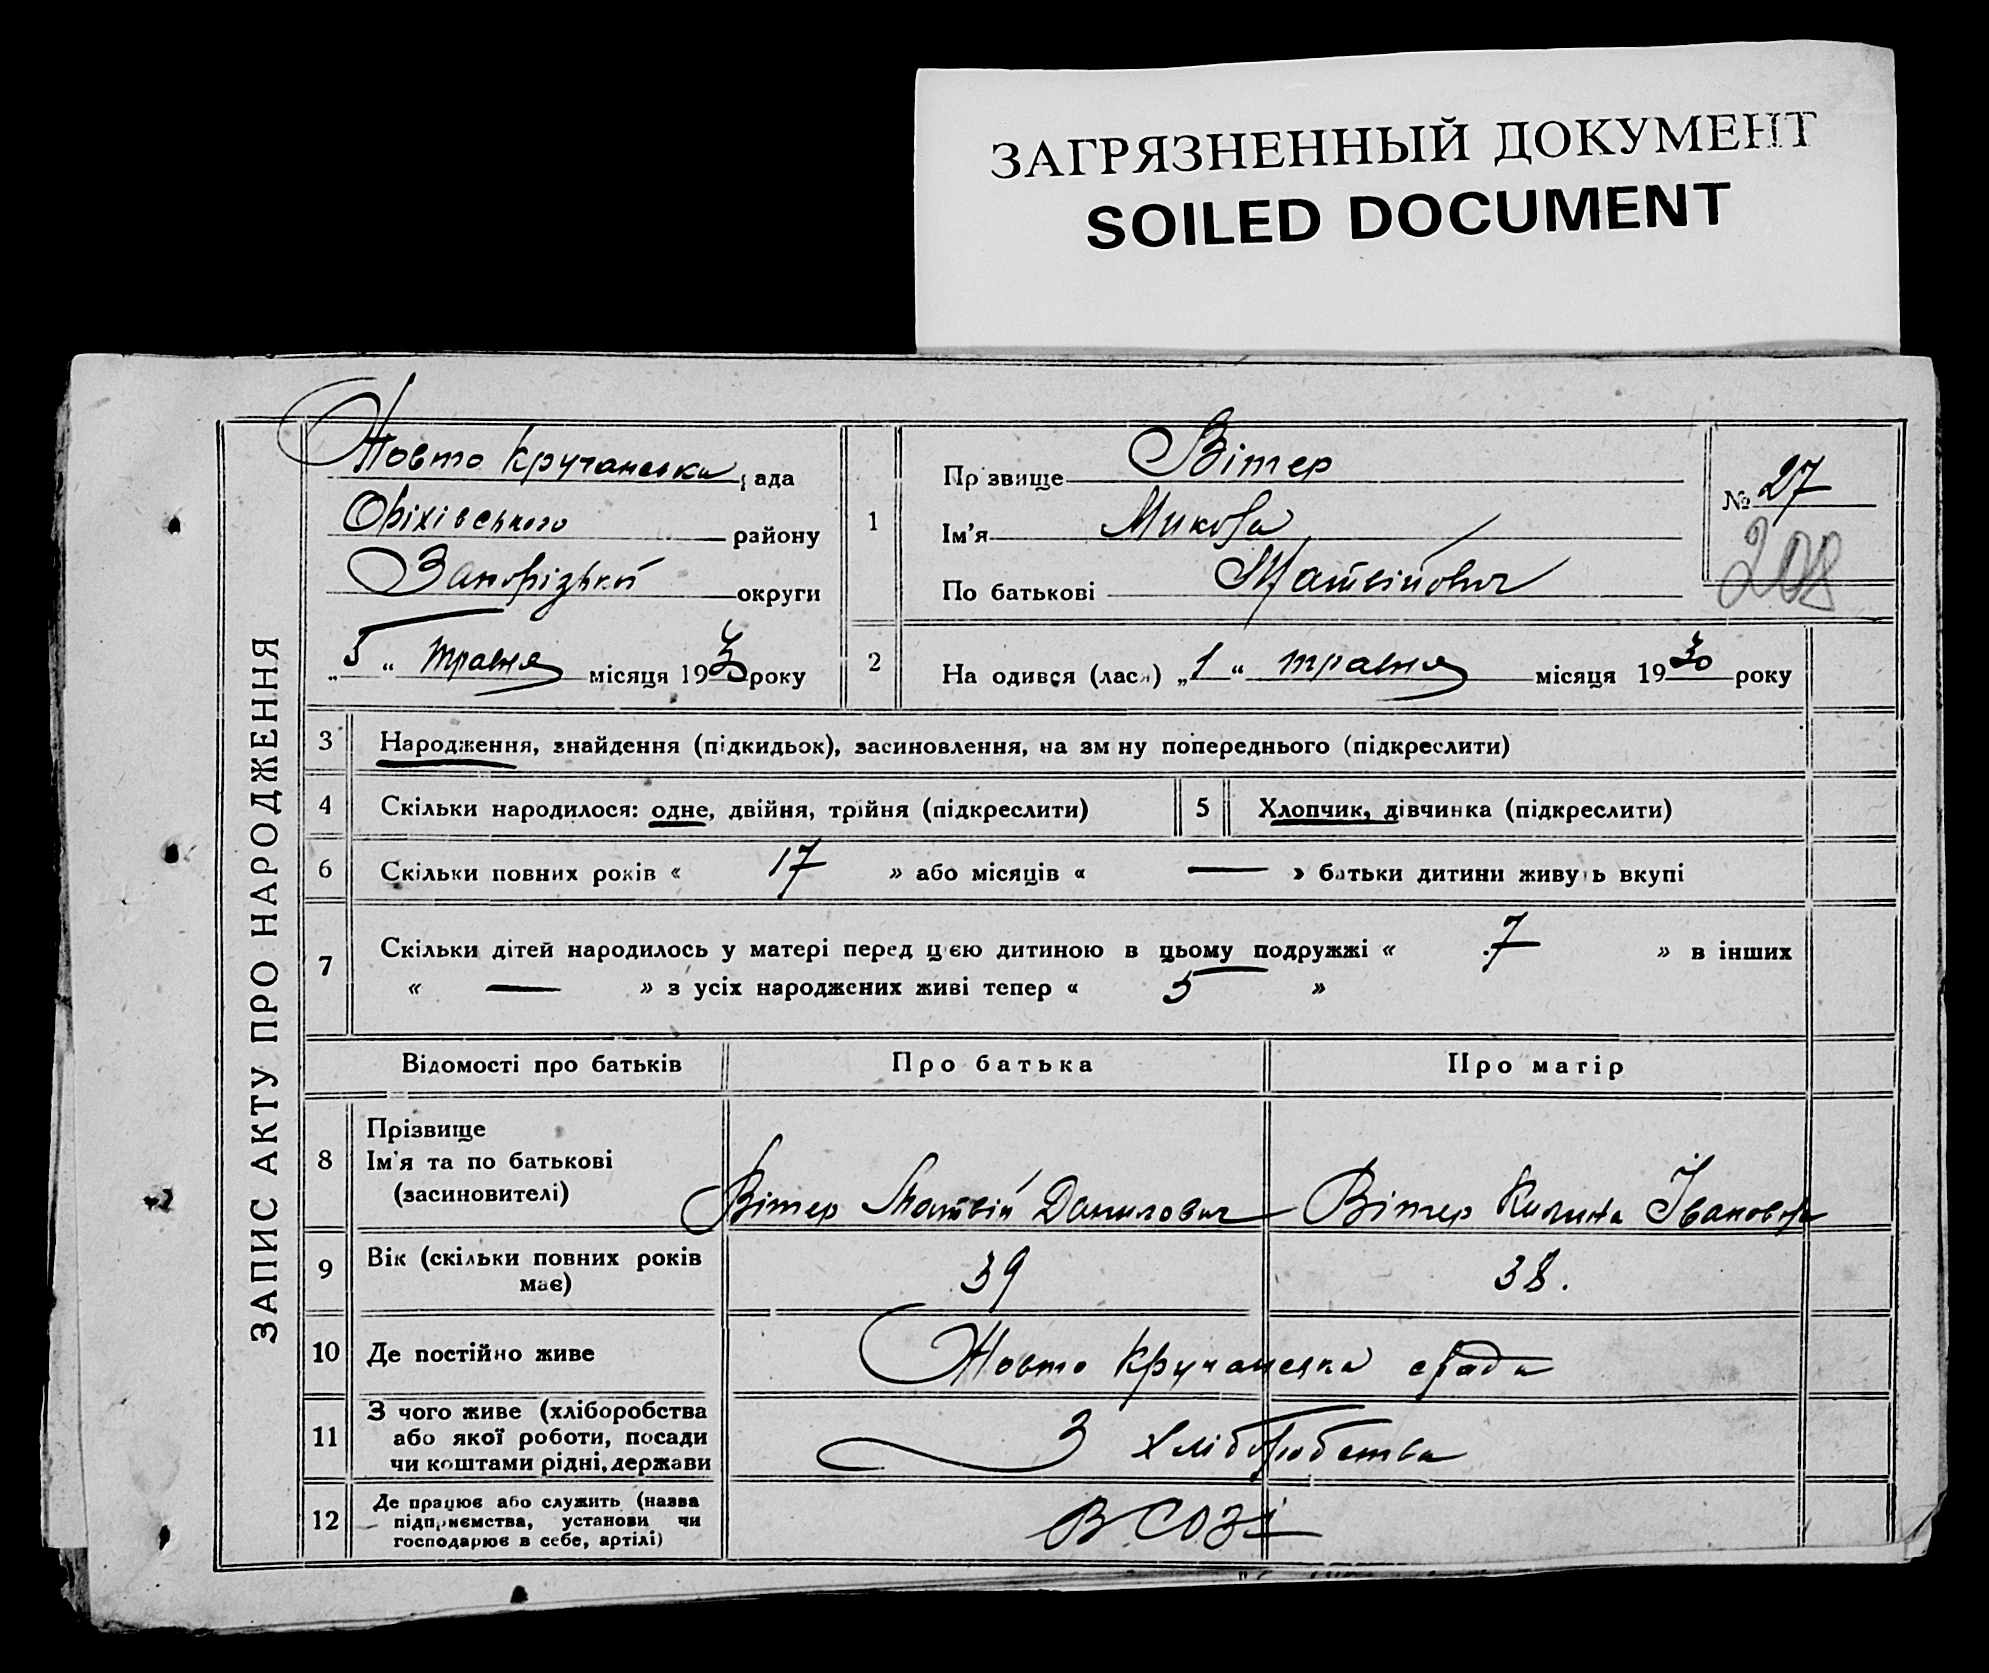 ЗАГРЯЗНЕННЫЙ ДОКУМЕНТ
SOILED DOCUMENT
ЗАПИС АКТУ ПРО НАРОДЖЕННЯ
Жовто Кручанська рада
Оріхівського району
Запорізької округи
„5“ травня місяця 1930 року
1
Прізвище Вітер
Ім'я Микола
По батькові Матвійович
№ 27
208
2
На одився (лася) „1“ травня місяця 1930 року
3 Народження, знайдення (підкидьок), засиновлення, на зм ну попереднього (підкреслити)
4 Скільки народилося: одне, двійня, трійня (підкреслити) 5 Хлопчик, дівчинка (підкреслити)
6 Скільки повних років « 17 » або місяців « — » батьки дитини живуть вкупі
7 Скільки дітей народилось у матері перед цією дитиною в цьому подружжі « 7 » в інших
« — » з усіх народжених живі тепер « 5 »
Відомості про батьків Про батька Про матір
8 Прізвище
Ім'я та по батькові
(засиновителі)
Вітер Матвій Данилович Вітер Килина Івановна
9 Вік (скільки повних років
має)
39 38.
10 Де постійно живе Жовто Кручанська с/рада
11 З чого живе (хліборобства
або якої роботи, посади
чи коштами рідні, держави
З хліборобства
12 Де працює або служить (назва
підприємства, установи чи
господарює в себе, артілі)
В СОЗі